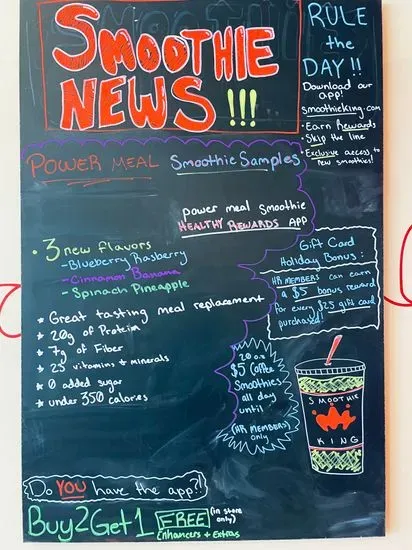 SMOOTHIE
NEWS !!!
RULE
the
DAY!!
Download our
app!
smoothieking.com
• Earn Rewards
• Skip the line
• Exclusive access to
new smoothies!
POWER MEAL Smoothie Samples
power meal smoothie
HEALTHY REWARDS APP
• 3 new flavors
- Blueberry Rasberry
- Cinnamon Banana
- Spinach Pineapple
* Great tasting meal replacement
* 20g of Protein
* 7g of Fiber
* 25 vitamins + minerals
* 0 added sugar
* under 350 calories
Gift Card
Holiday Bonus:
HR MEMBERS can earn
a $5 bonus reward
for every $25 gift card
purchased!
20 oz
$5 Coffee
Smoothies
all day
until
(HR MEMBERS)
only
SMOOTHIE
KING
Do YOU have the app?!
Buy2Get1 FREE (in store
only)
Enhancers + Extras